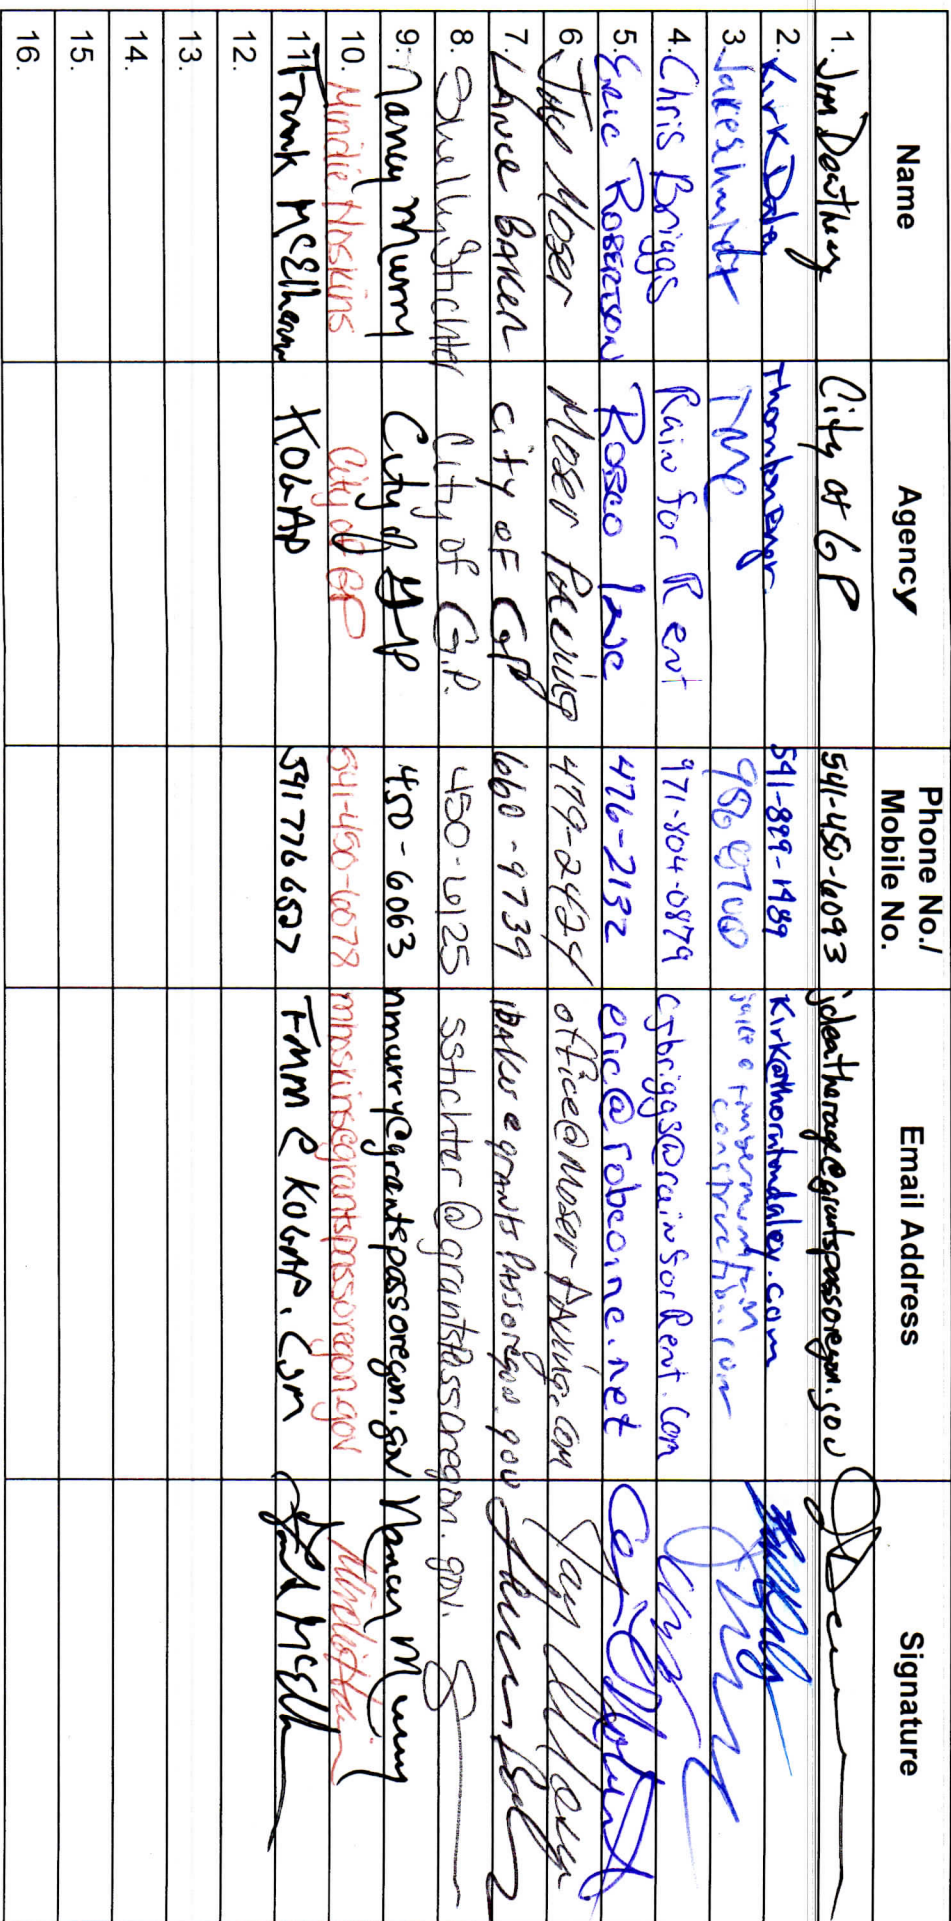 Name Agency Phone No./ Mobile No. Email Address Signature
1. Jim Deatherage City of GP 541-450-6093 jdeatherage@grantspassoregon.gov
2. Kirk Daley Thornton Engr. 541-899-1489 Kirk@thorntondaley.com
3. Jake Schmidt TMC jake@timbermountain construction.com
4. Chris Briggs Rain for Rent 971-804-0879 cjbriggs@rainforRent.com
5. Eric ROBERTSON ROBCO Inc 476-2132 eric@robcoinc.net
6 Jay Moser Moser Paving 479-2424 office@Moser-PAVing.com Jay Moser
7. LANCE BAKER City of GP 660-9739 lBaker@grantsPassoregon.gov
8. Shelly Stichter City of G.P. 450-6125 sstichter@grantsPassoregon.gov.
9. Nancy Murry City of GP 450-6063 nmurry@grantspassoregon.gov Nancy Murry
10. Mindie Hoskins City of GP 541-450-6078 mhoskins@grantspassoregon.gov
11. Frank McElhenn KOGAP 541 776 6527 FMM@KOGAP.Com
12.
13.
14.
15.
16.